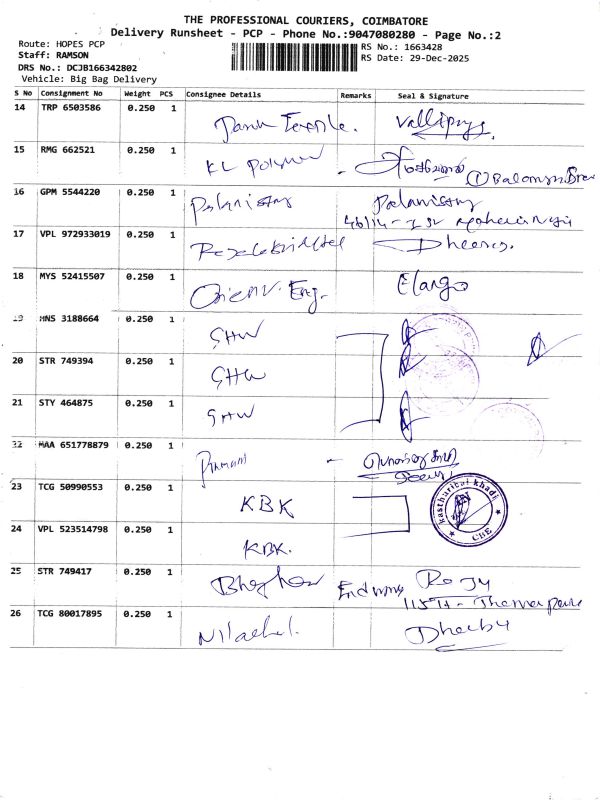 THE PROFESSIONAL COURIERS, COIMBATORE
Delivery Runsheet - PCP - Phone No.:9047080280 - Page No.:2
Route: HOPES PCP
RS No.: 1663428
Staff: RAMSON
RS Date: 29-Dec-2025
DRS No.: DCJB166342802
Vehicle: Big Bag Delivery
S No Consignment No Weight PCS Consignee Details Remarks Seal & Signature
14 TRP 6503586 0.250 1
15 RMG 662521 0.250 1 KL Polymer
16 GPM 5544220 0.250 1 Palanisamy Palanisamy
17 VPL 972933019 0.250 1
18 MYS 52415507 0.250 1 Eng. Elango
19 MNS 3188664 0.250 1 SHW
20 STR 749394 0.250 1 SHW
21 STY 464875 0.250 1 SHW
22 MAA 651778879 0.250 1
23 TCG 50990553 0.250 1 KBK kasthuribai khadi CBE
24 VPL 523514798 0.250 1 KBK.
25 STR 749417 0.250 1
26 TCG 80017895 0.250 1